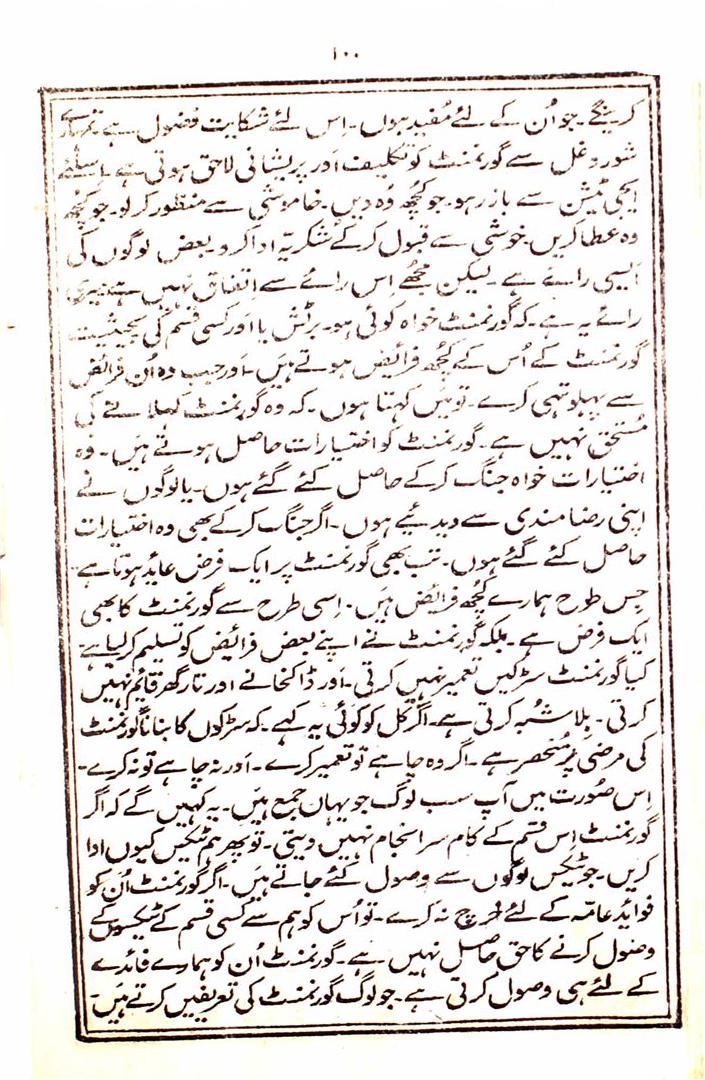 ۱۰۰
کرینگے۔ جو اُن کے لئے مُفید ہوں۔ اِس لئے شکایت فضول ہے۔ تمہارے
شور و غل سے گورنمنٹ کو تکلیف اَور پریشانی لاحق ہوتی ہے۔ اسلئے
ایجی ٹیشن سے باز رہو۔ جو کچُھ وُہ دیں۔ خاموشی سے منظور کر لو۔ جو کچُھ
وہ عطا کریں خوشی سے قبول کرکے شکریّہ ادا کرو۔ بعض لوگوں کی
ایسی رائے ہے۔ لیکن مجُھے اِس رائے سے اتفاق نہیں ہے میری
رائے یہ ہے۔ کہ گورنمنٹ خواہ کوئی ہو۔ برٹش یا اَور کسی قسم کی بحیثیت
گورنمنٹ کے اُس کے کچُھ فرائض ہوتے ہیَں۔ اَور جب وہ اُن فرائض
سے پہلو تہی کرے۔ تو میَں کہتا ہوں۔ کہ وہ گورنمنٹ کہلانے کی
مُستحق نہیں ہے۔ گورنمنٹ کو اختیارات حاصل ہوتے ہیَں۔ وُہ
اختیارات خواہ جنگ کرکے حاصل کئے گئے ہوں۔ یا لوگوں نے
اپنی رضا مندی سے دیدئیے ہوں۔ اگر جنگ کرکے بھی وہ اختیارات
حاصل کئے گئے ہوں۔ تب بھی گورنمنٹ پر ایک فرض عاید ہوتا ہے
جِس طرح ہمارے کچُھ فرائض ہیَں۔ اِسی طرح سے گورنمنٹ کا بھی
ایک فرض ہے۔ بلکہ گورنمنٹ نے اپنے بعض فرائض کو تسلیم کر لیا ہے
کیا گورنمنٹ سڑکیں تعمیر نہیں کرتی۔ اَور ڈاکخانے اور تار گھر قائم نہیں
کرتی۔ بِلا شُبہ کرتی ہے۔ اگر کل کو کوئی یہ کہے۔ کہ سڑکوں کا بنانا گورنمنٹ
کی مرضی پر مُنحصر ہے۔ اگر وہ چاہے تو تعمیر کرے۔ اَور نہ چاہے تو نہ کرے۔
اِس صُورت میں آپ سب لوگ جو یہاں جمع ہیَں۔ یہ کہیں گے کہ اگر
گورنمنٹ اِس قسم کے کام سر انجام نہیں دیتی۔ تو پھر ہم ٹیکس کیوں ادا
کریں۔ جو ٹیکس لوگوں سے وصول کئے جاتے ہیَں۔ اگر گورنمنٹ اُن کو
فوایدِ عامّہ کے لئے خرچ نہ کرے۔ تو اُس کو ہم سے کسی قسم کے ٹیکسوں کے
وصُول کرنے کا حق حاصل نہیں ہے۔ گورنمنٹ اُن کو ہمارے فائدے
کے لئے ہی وصول کرتی ہے۔ جو لوگ گورنمنٹ کی تعریفیں کرتے ہیَں۔